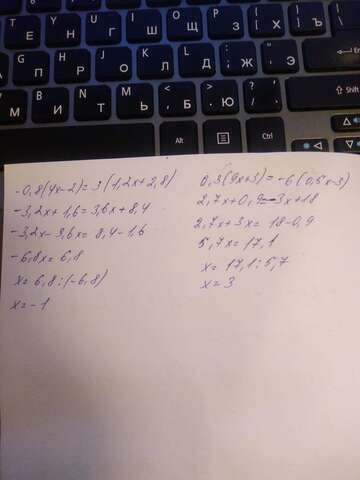 Г Ш Щ З Х Ъ
П Р О Л Д Ж Э Enter
М И Т Ь Б Ю , Shift
Alt Ctrl
-0,8(4x-2)=3(1,2x+2,8)
-3,2x+1,6=3,6x+8,4
-3,2x-3,6x=8,4-1,6
-6,8x=6,8
x=6,8:(-6,8)
x=-1
0,3(9x+3)=-6(0,5x-3)
2,7x+0,9=-3x+18
2,7x+3x=18-0,9
5,7x=17,1
x=17,1:5,7
x=3